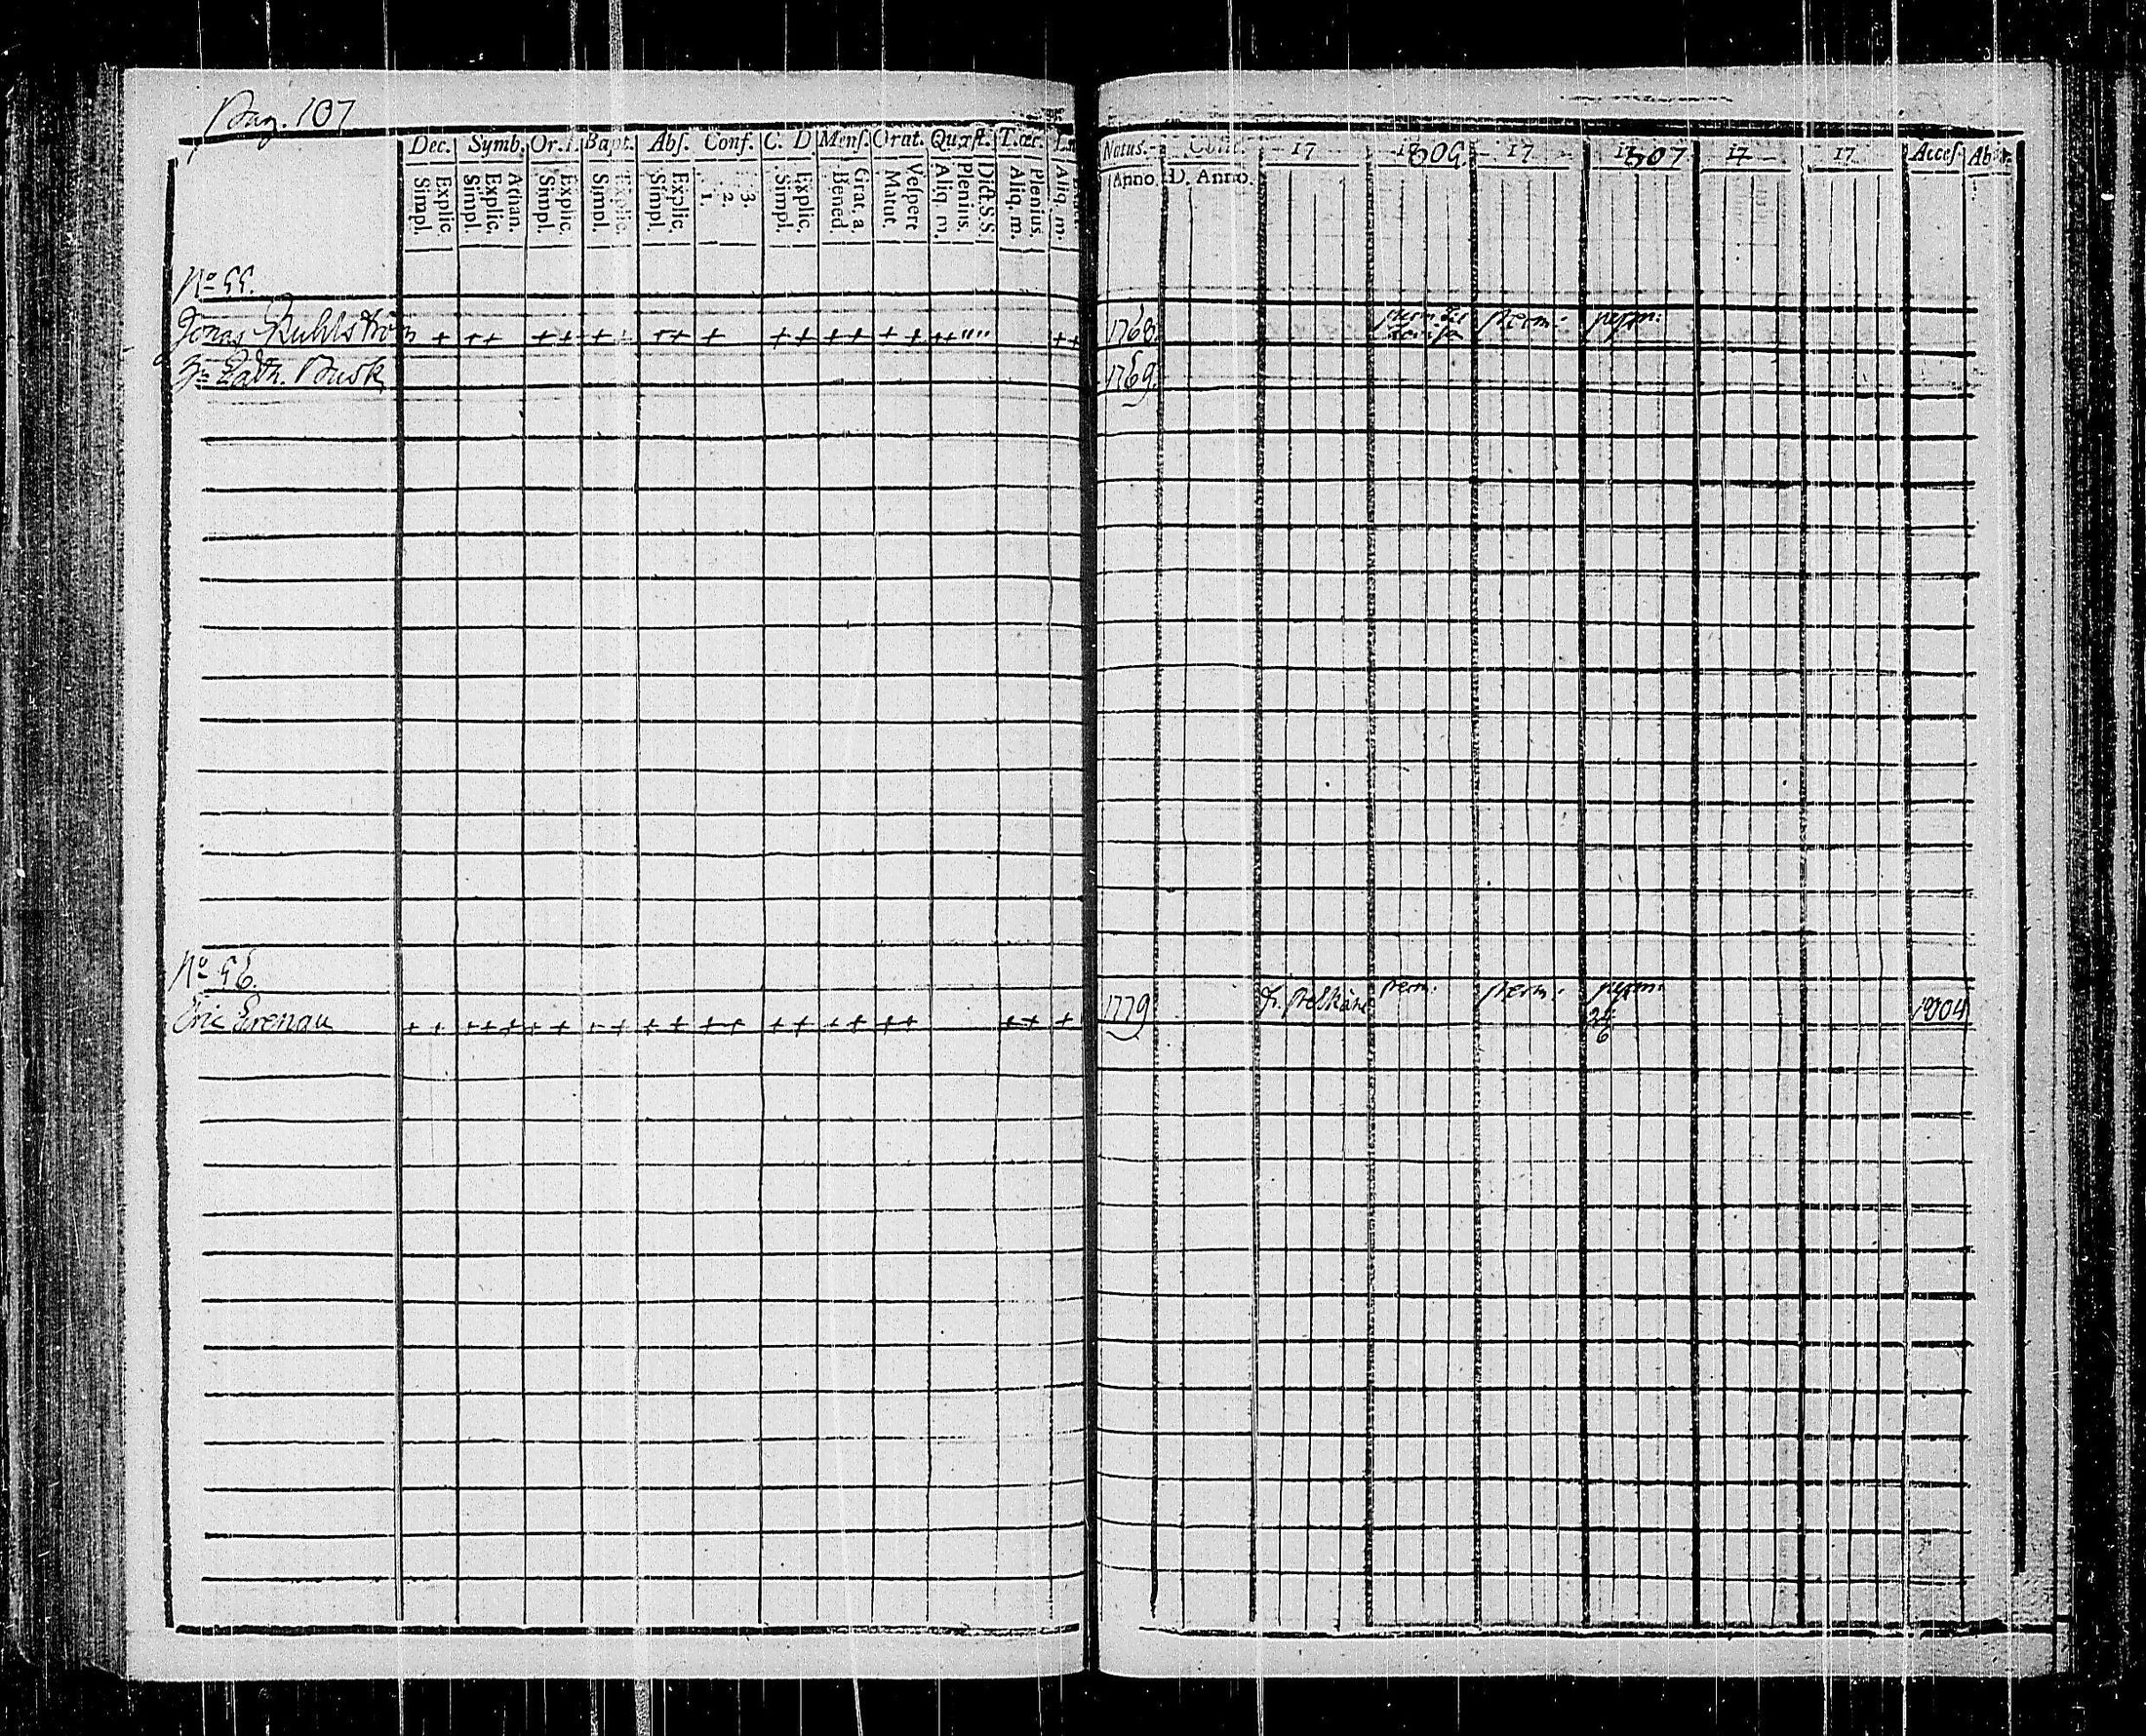 Pag. 107
Dec. Symb. Or. Bapt. Abs. Conf. C. D Mens. Orat. Quæst. T. œc.
Simpl Explic Simpl Explic. Athan. Simpl. Explic. Simpl. Explic. Simpl Explic. 1. 2. 3. Simpl. Explic. Bened Grat. a Matut. Vespert Aliq. m. Plenius. Dict. S. S. Aliq. m. Plenius. Aliq. m.
Natus. 17 1805 17 1807 17 17 Acces
Anno. D. Anno.
No 55.
Jonas 1768. perm: perm:
Cath. Busk 1769.
No 56.
Eric Grenau 1779 fr. perm: perm: perm: 1804
6